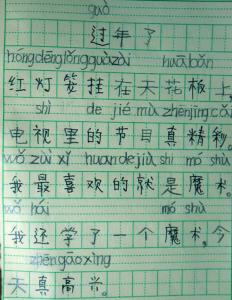 guò
过年了
hóngdēnglǒngguàzài huābǎn
红灯笼挂在天花板上,
shì de jié mù zhēnjīngcǎi
电视里的节目真精彩。
wǒ zuì xǐ huan de jiù shì mó shù
我最喜欢的就是魔术。
wǒ hái mó shù
我还学了一个魔术,今
zhēngāoxìng
天真高兴。